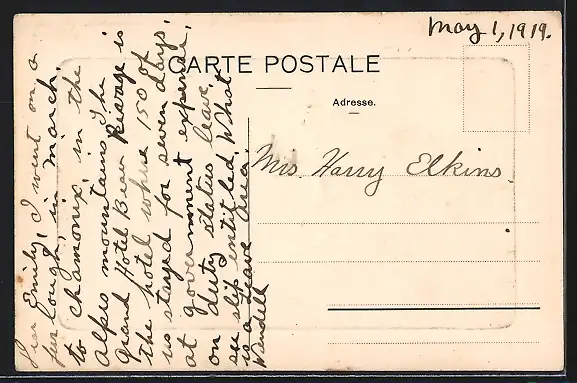 May 1, 1919.
CARTE POSTALE
Adresse.
Mrs. Harry Elkins.
Dear Emily, I went on a
furlough, in march,
to chamonix, in the
Alps mountains The
Grand Hotel Beau Rivage is
the hotel where 150 of
us stayed for seven days,
at government expense.
on duty status leave
see slip entitled, What
is a Leave Area.
Wendell